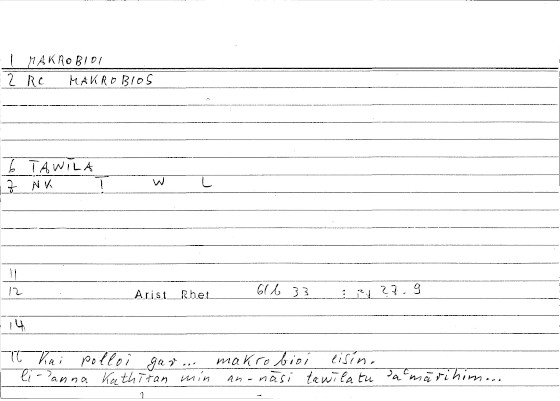 1 MAKROBIOI
2 RC MAKROBIOS
6 ṬAWĪLA
7 NK Ṭ W L
11
12 Arist Rhet 61b 33 : 27.9
14
Kai polloi gar... makrobioi eisin.
li-ʾanna Kathīran min an-nāsi tawīlatu ʾaʿmārihim...